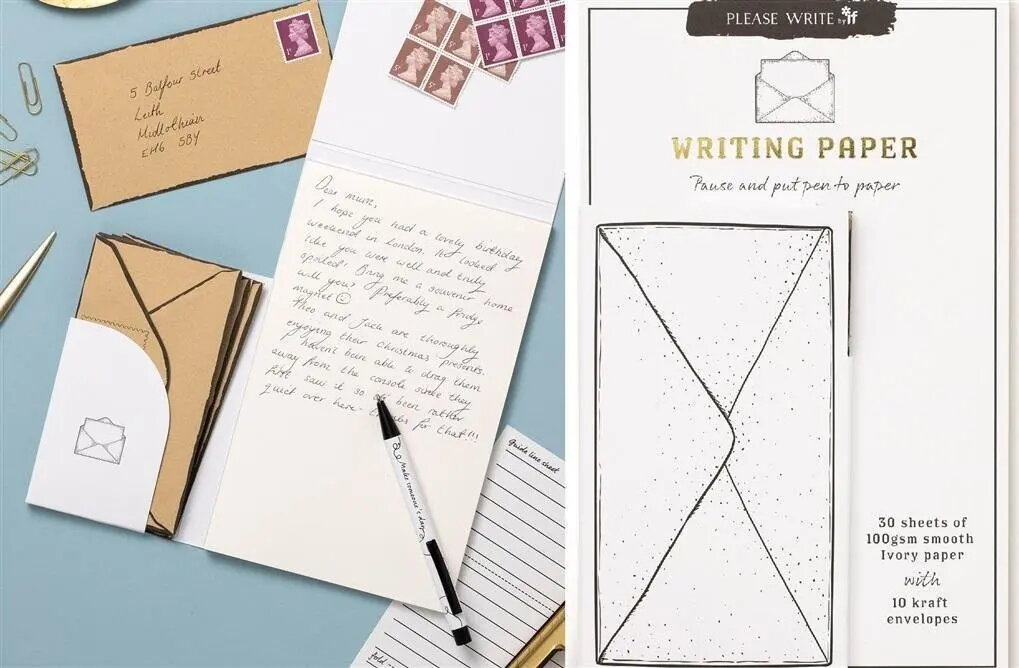 5 Balfour Street
Leith
Midlothian
EH6 5BY
1P
5P
Dear mum,
I hope you had a lovely birthday
weekend in London. It looked
like you were well and truly
spoiled! Bring me a souvenir home
will you? Preferably a fridge
magnet ☺
Theo and Jack are thoroughly
enjoying their Christmas presents.
I haven't been able to drag them
away from the console since they
first saw it so it's been rather
quiet over here - for that!!!
Make someone's day
Guide line sheet
fold
PLEASE WRITE by if
WRITING PAPER
Pause and put pen to paper
30 sheets of
100gsm smooth
Ivory paper
with
10 kraft
envelopes